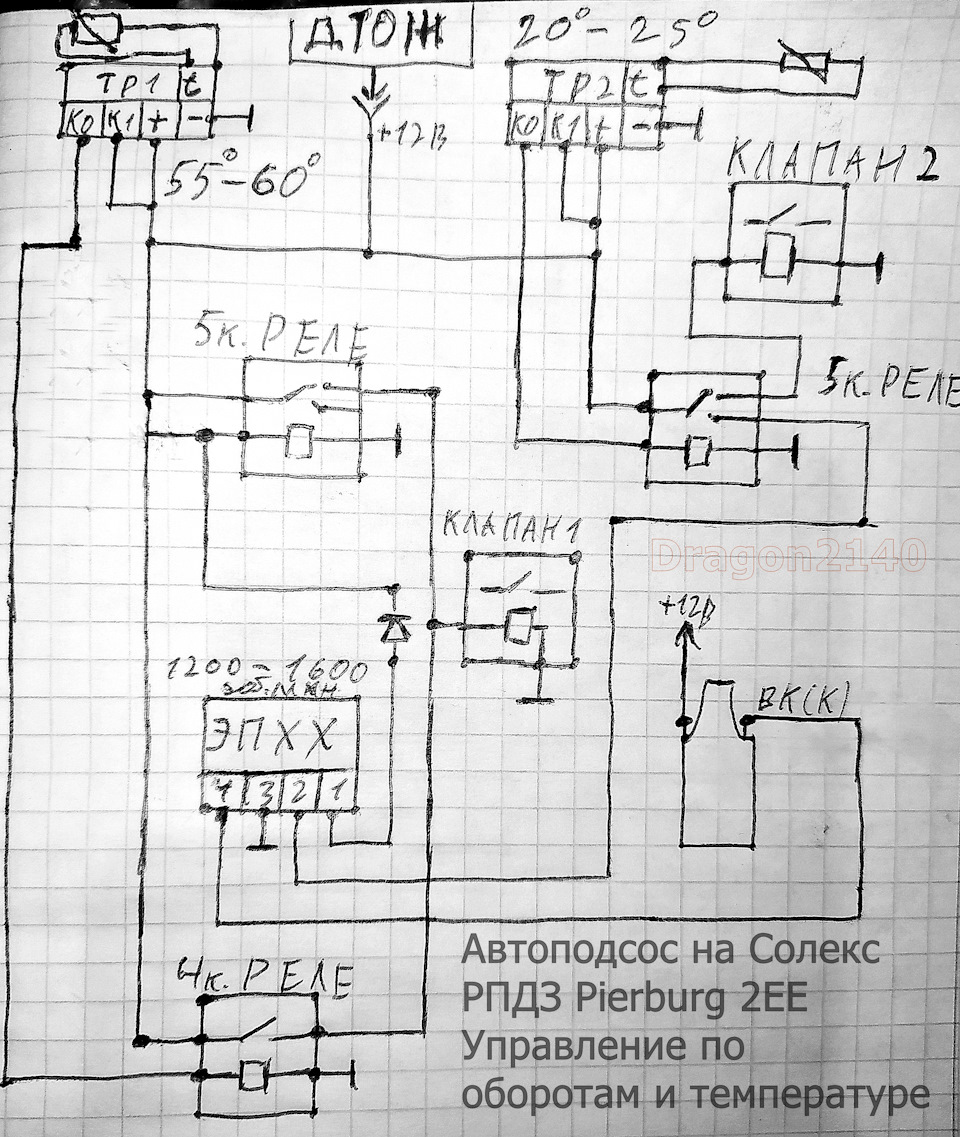 ДТОЖ
20°-25°
ТР1 t
К0 К1 + -
+12В
ТР2 t
К0 К1 + -
55°-60°
КЛАПАН 2
5к. РЕЛЕ
5к. РЕЛЕ
КЛАПАН 1
Dragon2140
+12В
1200-1600
об.мин.
ВК(К)
ЭПХХ
4 3 2 1
4к. РЕЛЕ
Автоподсос на Солекс
РПДЗ Pierburg 2EE
Управление по
оборотам и температуре